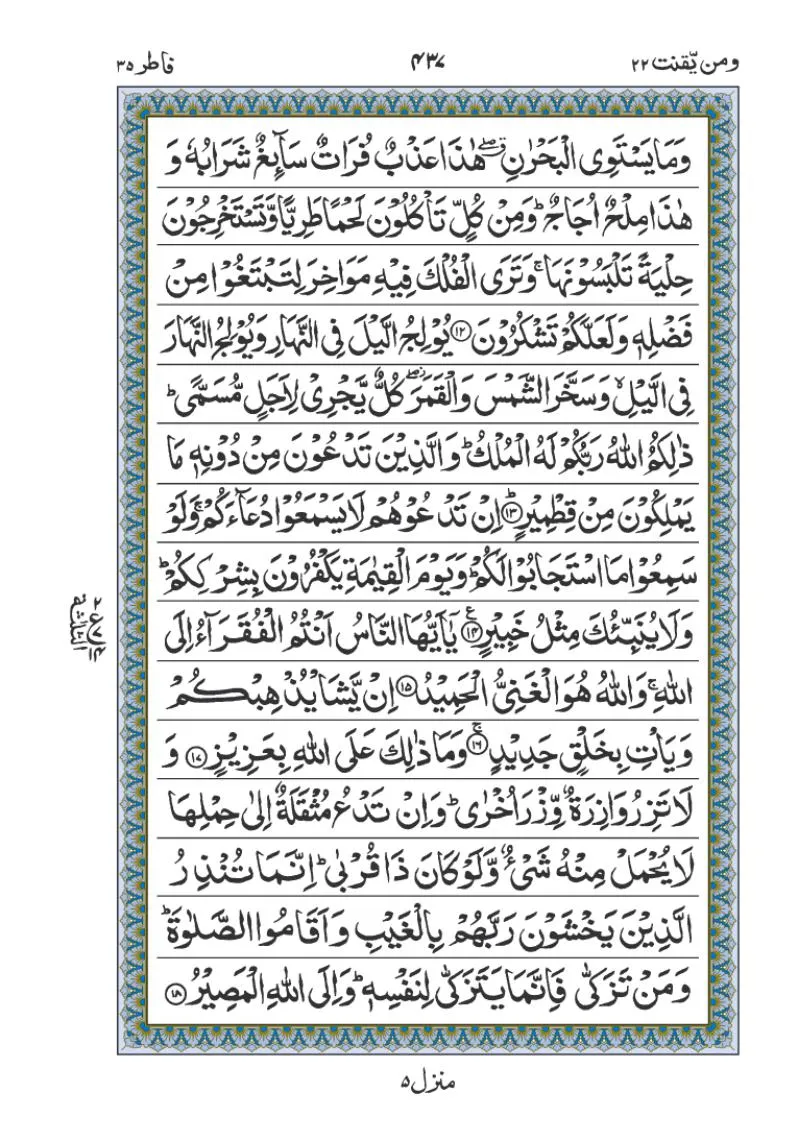 ومن يّقنت ٢٢
٤٣٧
فاطر ٣٥
وَمَا يَسْتَوِى الْبَحْرٰنِ ۖ هٰذَا عَذْبٌ فُرَاتٌ سَآئِغٌ شَرَابُهٗ وَ
هٰذَا مِلْحٌ اُجَاجٌ ؕ وَمِنْ كُلٍّ تَاْكُلُوْنَ لَحْمًا طَرِيًّا وَّتَسْتَخْرِجُوْنَ
حِلْيَةً تَلْبَسُوْنَهَا ۚ وَتَرَى الْفُلْكَ فِيْهِ مَوَاخِرَ لِتَبْتَغُوْا مِنْ
فَضْلِهٖ وَلَعَلَّكُمْ تَشْكُرُوْنَ ﴿١٢﴾ يُوْلِجُ الَّيْلَ فِى النَّهَارِ وَيُوْلِجُ النَّهَارَ
فِى الَّيْلِ ۙ وَسَخَّرَ الشَّمْسَ وَالْقَمَرَ ۖ كُلٌّ يَّجْرِىْ لِاَجَلٍ مُّسَمًّى ؕ
ذٰلِكُمُ اللّٰهُ رَبُّكُمْ لَهُ الْمُلْكُ ؕ وَالَّذِيْنَ تَدْعُوْنَ مِنْ دُوْنِهٖ مَا
يَمْلِكُوْنَ مِنْ قِطْمِيْرٍ ؕ ﴿١٣﴾ اِنْ تَدْعُوْهُمْ لَا يَسْمَعُوْا دُعَآءَكُمْ ۚ وَلَوْ
سَمِعُوْا مَا اسْتَجَابُوْا لَكُمْ ؕ وَيَوْمَ الْقِيٰمَةِ يَكْفُرُوْنَ بِشِرْكِكُمْ ؕ
وَلَا يُنَبِّئُكَ مِثْلُ خَبِيْرٍ ﴿١٤﴾ ع يٰۤاَيُّهَا النَّاسُ اَنْتُمُ الْفُقَرَآءُ اِلَى
اللّٰهِ ۚ وَاللّٰهُ هُوَ الْغَنِىُّ الْحَمِيْدُ ﴿١٥﴾ اِنْ يَّشَاْ يُذْهِبْكُمْ
وَيَاْتِ بِخَلْقٍ جَدِيْدٍ ۚ ﴿١٦﴾ وَمَا ذٰلِكَ عَلَى اللّٰهِ بِعَزِيْزٍ ﴿١٧﴾ وَ
لَا تَزِرُ وَازِرَةٌ وِّزْرَ اُخْرٰى ؕ وَاِنْ تَدْعُ مُثْقَلَةٌ اِلٰى حِمْلِهَا
لَا يُحْمَلْ مِنْهُ شَىْءٌ وَّلَوْ كَانَ ذَا قُرْبٰى ؕ اِنَّمَا تُنْذِرُ
الَّذِيْنَ يَخْشَوْنَ رَبَّهُمْ بِالْغَيْبِ وَاَقَامُوا الصَّلٰوةَ ؕ
وَمَنْ تَزَكّٰى فَاِنَّمَا يَتَزَكّٰى لِنَفْسِهٖ ؕ وَاِلَى اللّٰهِ الْمَصِيْرُ ﴿١٨﴾
منزل ٥